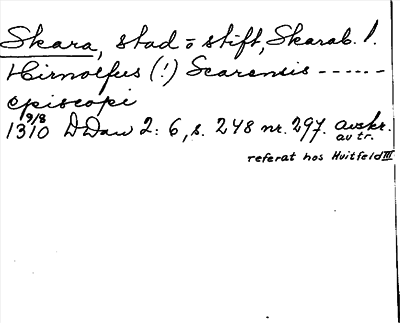 Skara, stad o stift, Skarab. l.
Hirnolfus (!) Scarensis ------
episcopi
9/8
1310 DDan 2: 6, s. 248 nr. 297. avskr.
av tr.
referat hos Huitfeld III